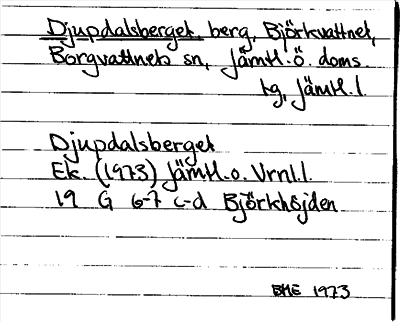 Djupdalsberget, berg, Björkvattnet,
Borgvattnets sn, Jämtl. Ö. doms.
tg, Jämtl. l.
Djupdalsberget
Ek. (1973) Jämtl. o. Vrml. l.
19 G 6-7 c-d Björkhöjden
BME 1973